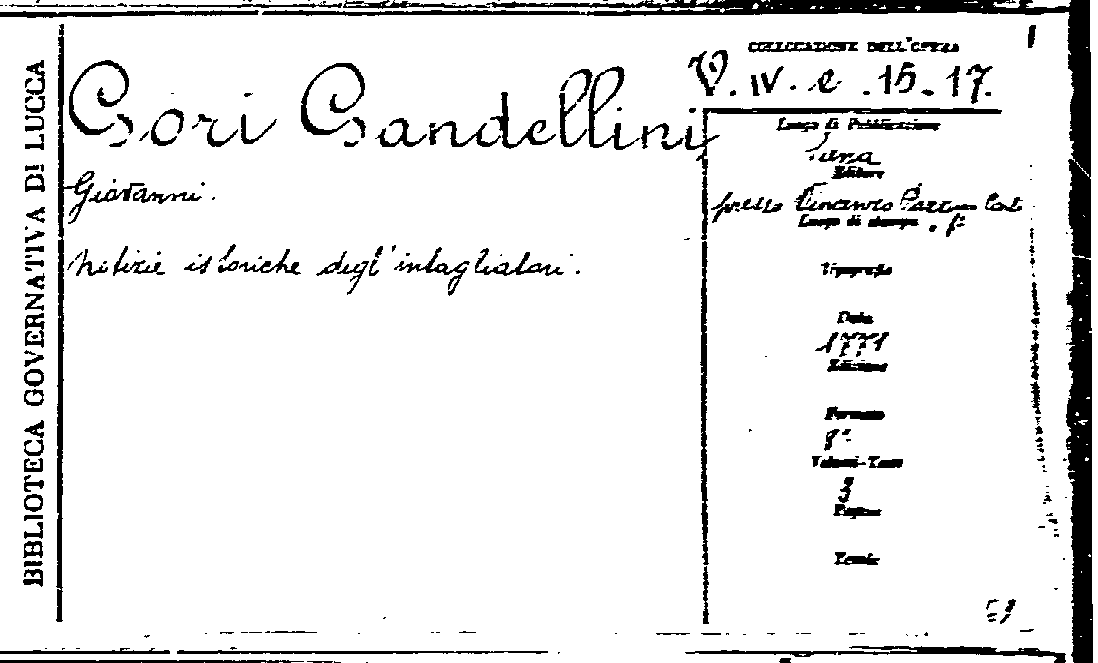 BIBLIOTECA GOVERNATIVA DI LUCCA
Gori Gandellini
Giovanni.
Notizie istoriche degl'intagliatori.
COLLOCAZIONE DELL'OPERA
V. IV. e. 15. 17.
Luogo di Pubblicazione
Editore
presso Vincenzo Pazzini Carli
Luogo di stampa
Tipografia
Data
1771
Edizione
Formato
8°
Volumi-Tomi
3
Pagine
Tavole